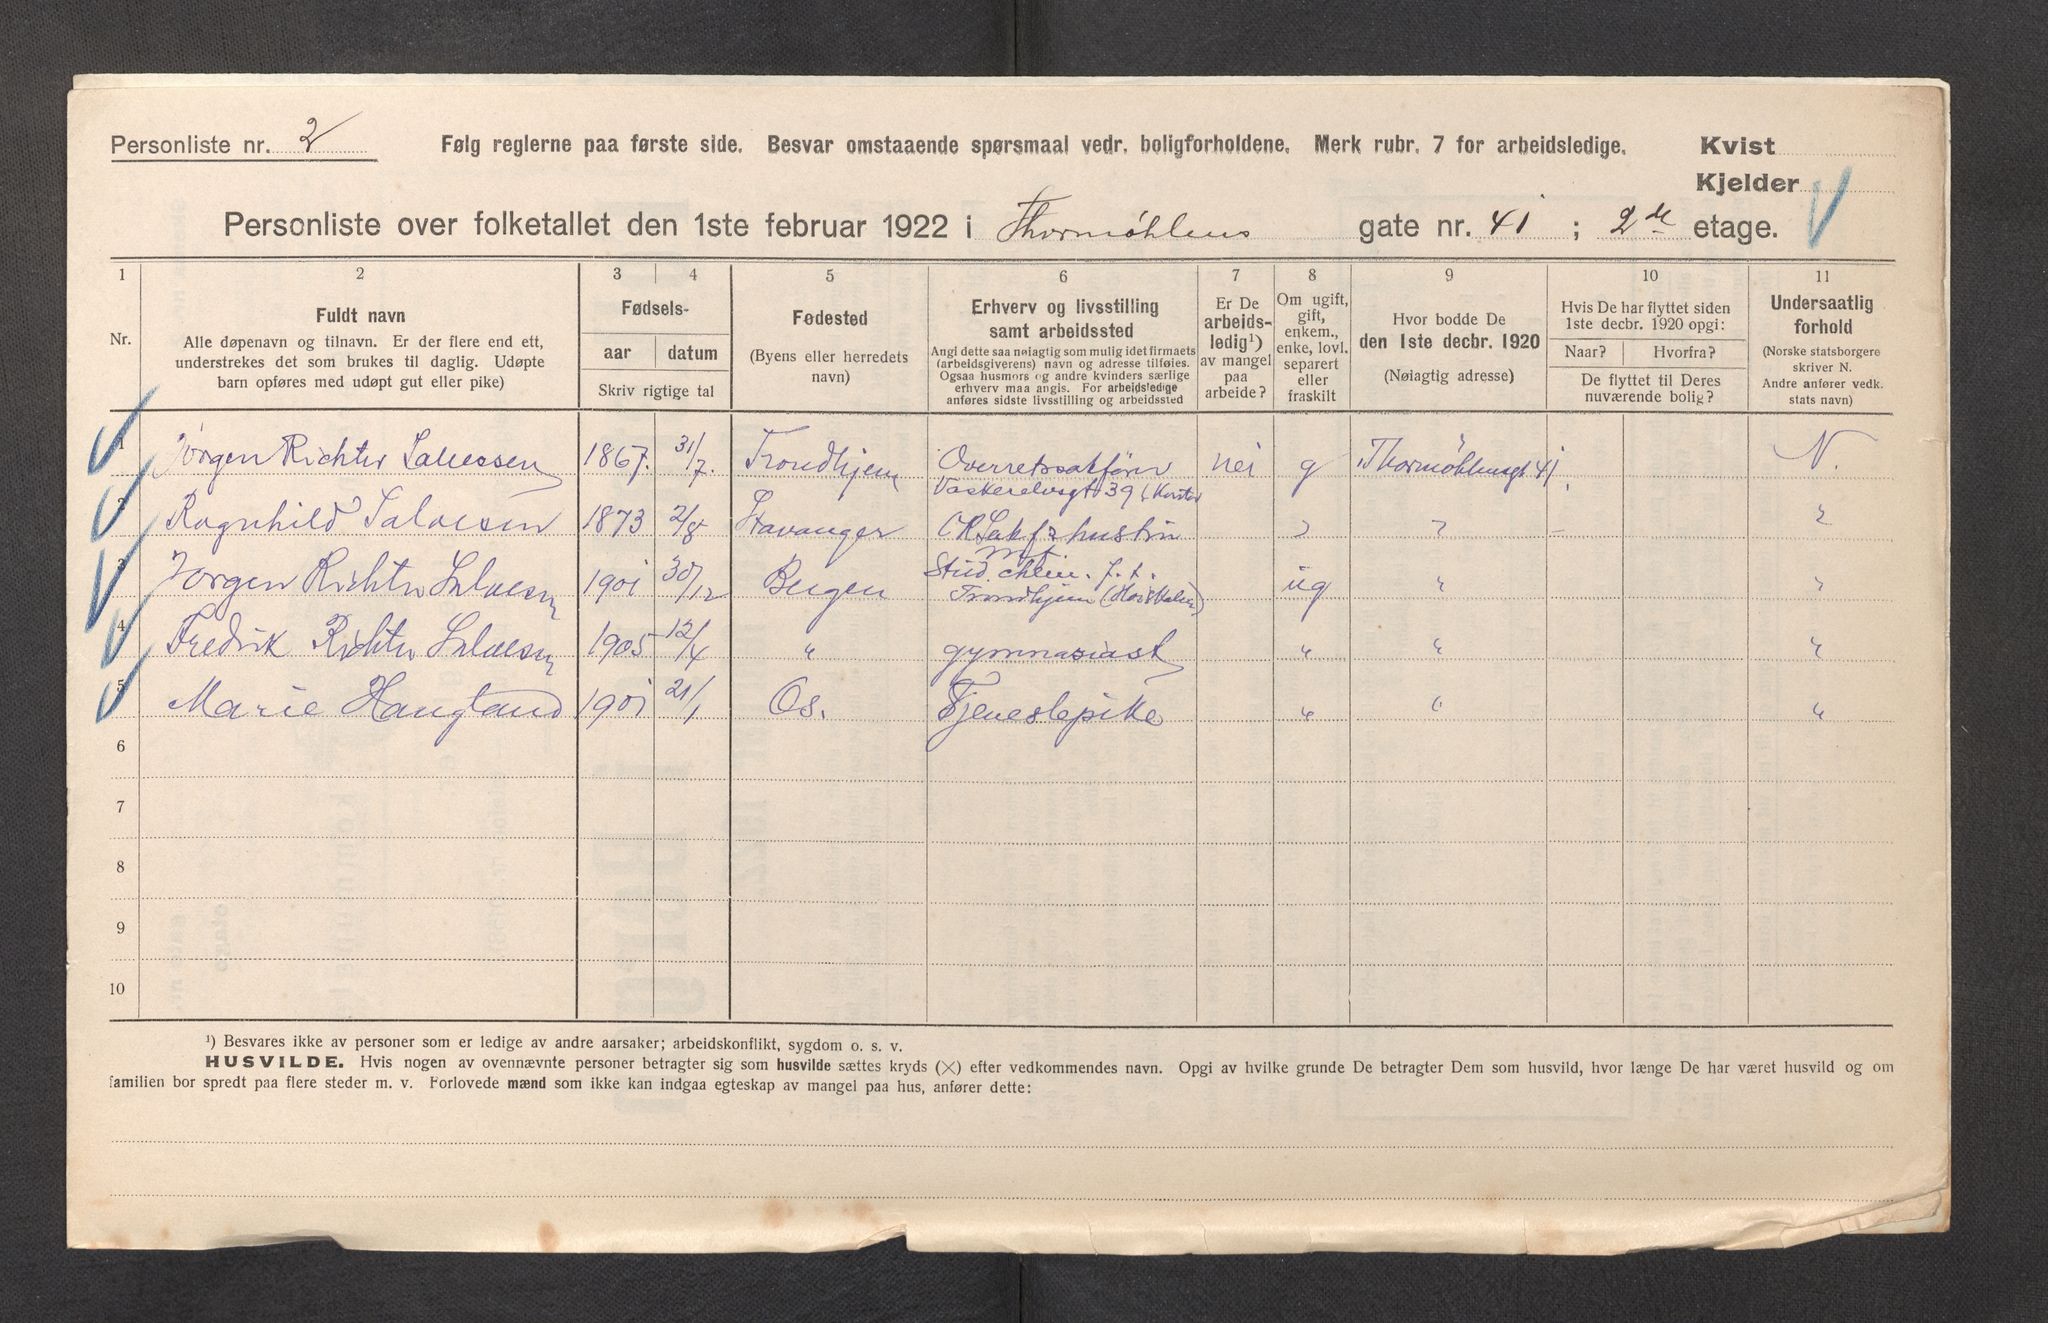 Personliste nr. 2 Følg reglerne paa første side. Besvar omstaaende spørsmaal vedr. boligforholdene. Merk rubr. 7 for arbeidsledige. Kvist
Kjelder
Personliste over folketallet den 1ste februar 1922 i Thormøhlens gate nr. 41 ; 2de etage.
1 2 3 4 5 6 7 8 9 10 11
Nr.
Fuldt navn
Alle døpenavn og tilnavn. Er der flere end ett,
understrekes det som brukes til daglig. Udøpte
barn opføres med udøpt gut eller pike)
Fødsels-
aar datum
Skriv rigtige tal
Fødested
(Byens eller herredets
navn)
Erhverv og livsstilling
samt arbeidssted
Angi dette saa nøiagtig som mulig idet firmaets
(arbeidsgiverens) navn og adresse tilføies.
Ogsaa husmors og andre kvinders særlige
erhverv maa angis. For arbeidsledige
anføres sidste livsstilling og arbeidssted
Er De
arbeids-
ledig¹)
av mangel
paa
arbeide?
Om ugift,
gift,
enkem.,
enke, lovl.
separert
eller
fraskilt
Hvor bodde De
den 1ste decbr. 1920
(Nøiagtig adresse)
Hvis De har flyttet siden
1ste decbr. 1920 opgi:
Naar? Hvorfra?
De flyttet til Deres
nuværende bolig?
Undersaatlig
forhold
(Norske statsborgere
skriver N.
Andre anfører vedk.
stats navn)
1 Jørgen Richter Salvesen 1867. 31/7. Trondhjem Overretssakfører nei g Thormøhlensgt 41. N.
39
2 Ragnhild Salvesen 1873 2/8 Stavanger hustru " " – "
3 Jørgen Richter Salvesen 1901 30/12 Bergen Stud. chem. f. t. ug " "
Trondhjem
4 Fredrik Richter Salvesen 1905 12/4 " gymnasiast " " "
5 Marie Haugland 1901 21/1 Os. Tjenestepike " " "
6
7
8
9
10
¹) Besvares ikke av personer som er ledige av andre aarsaker; arbeidskonflikt, sygdom o. s. v.
HUSVILDE. Hvis nogen av ovennævnte personer betragter sig som husvilde sættes kryds (×) efter vedkommendes navn. Opgi av hvilke grunde De betragter Dem som husvild, hvor længe De har været husvild og om
familien bor spredt paa flere steder m. v. Forlovede mænd som ikke kan indgaa egteskap av mangel paa hus, anfører dette: